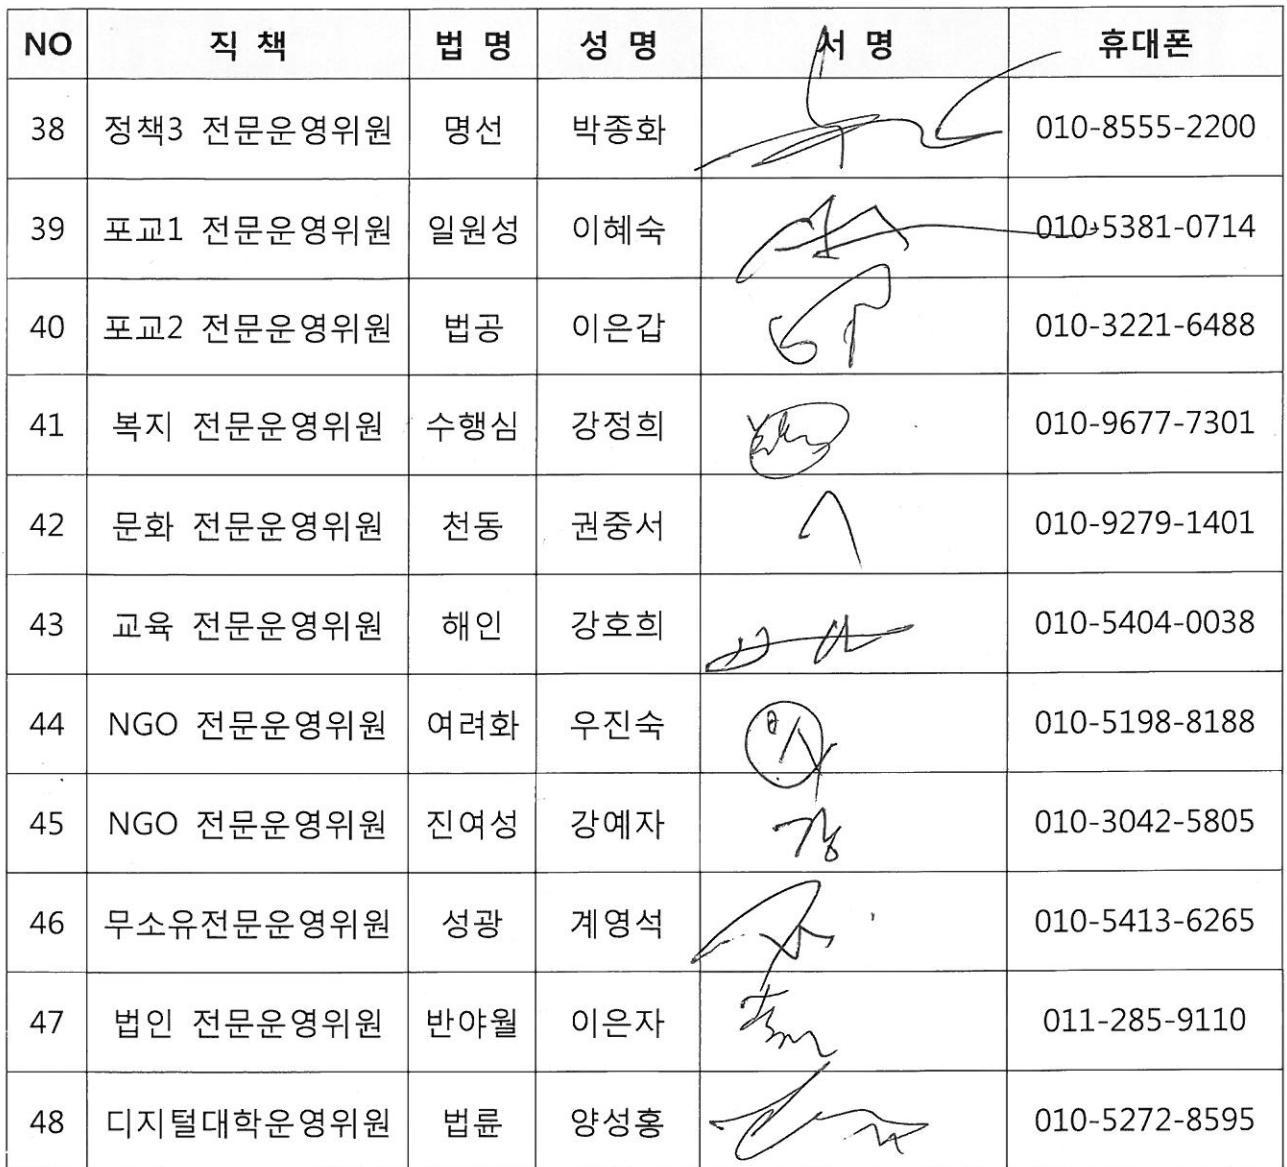 NO 직 책 법 명 성 명 서 명 휴대폰
38 정책3 전문운영위원 명선 박종화 010-8555-2200
39 포교1 전문운영위원 일원성 이혜숙 010-5381-0714
40 포교2 전문운영위원 법공 이은갑 010-3221-6488
41 복지 전문운영위원 수행심 강정희 010-9677-7301
42 문화 전문운영위원 천동 권중서 010-9279-1401
43 교육 전문운영위원 해인 강호희 010-5404-0038
44 NGO 전문운영위원 여려화 우진숙 010-5198-8188
45 NGO 전문운영위원 진여성 강예자 강 010-3042-5805
46 무소유전문운영위원 성광 계영석 010-5413-6265
47 법인 전문운영위원 반야월 이은자 011-285-9110
48 디지털대학운영위원 법륜 양성홍 010-5272-8595